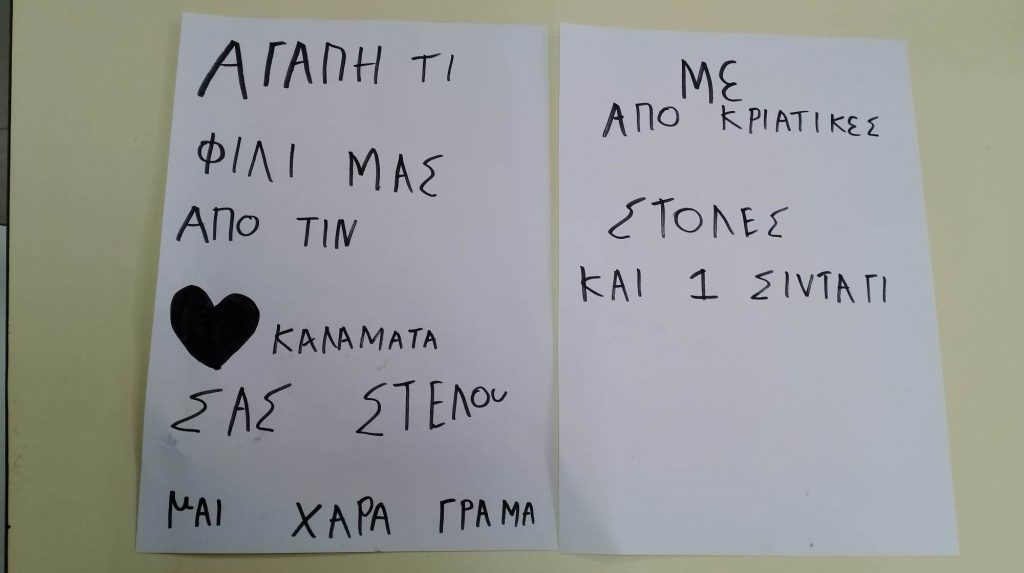 ΑΓΑΠΗ ΤΙ
ΦΙΛΙ ΜΑΣ
ΑΠΟ ΤΙΝ
ΚΑΛΑΜΑΤΑ
ΣΑΣ ΣΤΕΛΟυ
μΑΙ ΧΑΡΑ ΓΡΑΜΑ
ΜΕ
ΑΠΟ ΚΡΙΑΤΙΚΕΣ
ΣΤΟΛΕΣ
ΚΑΙ 1 ΣΙΝΤΑΓΙ